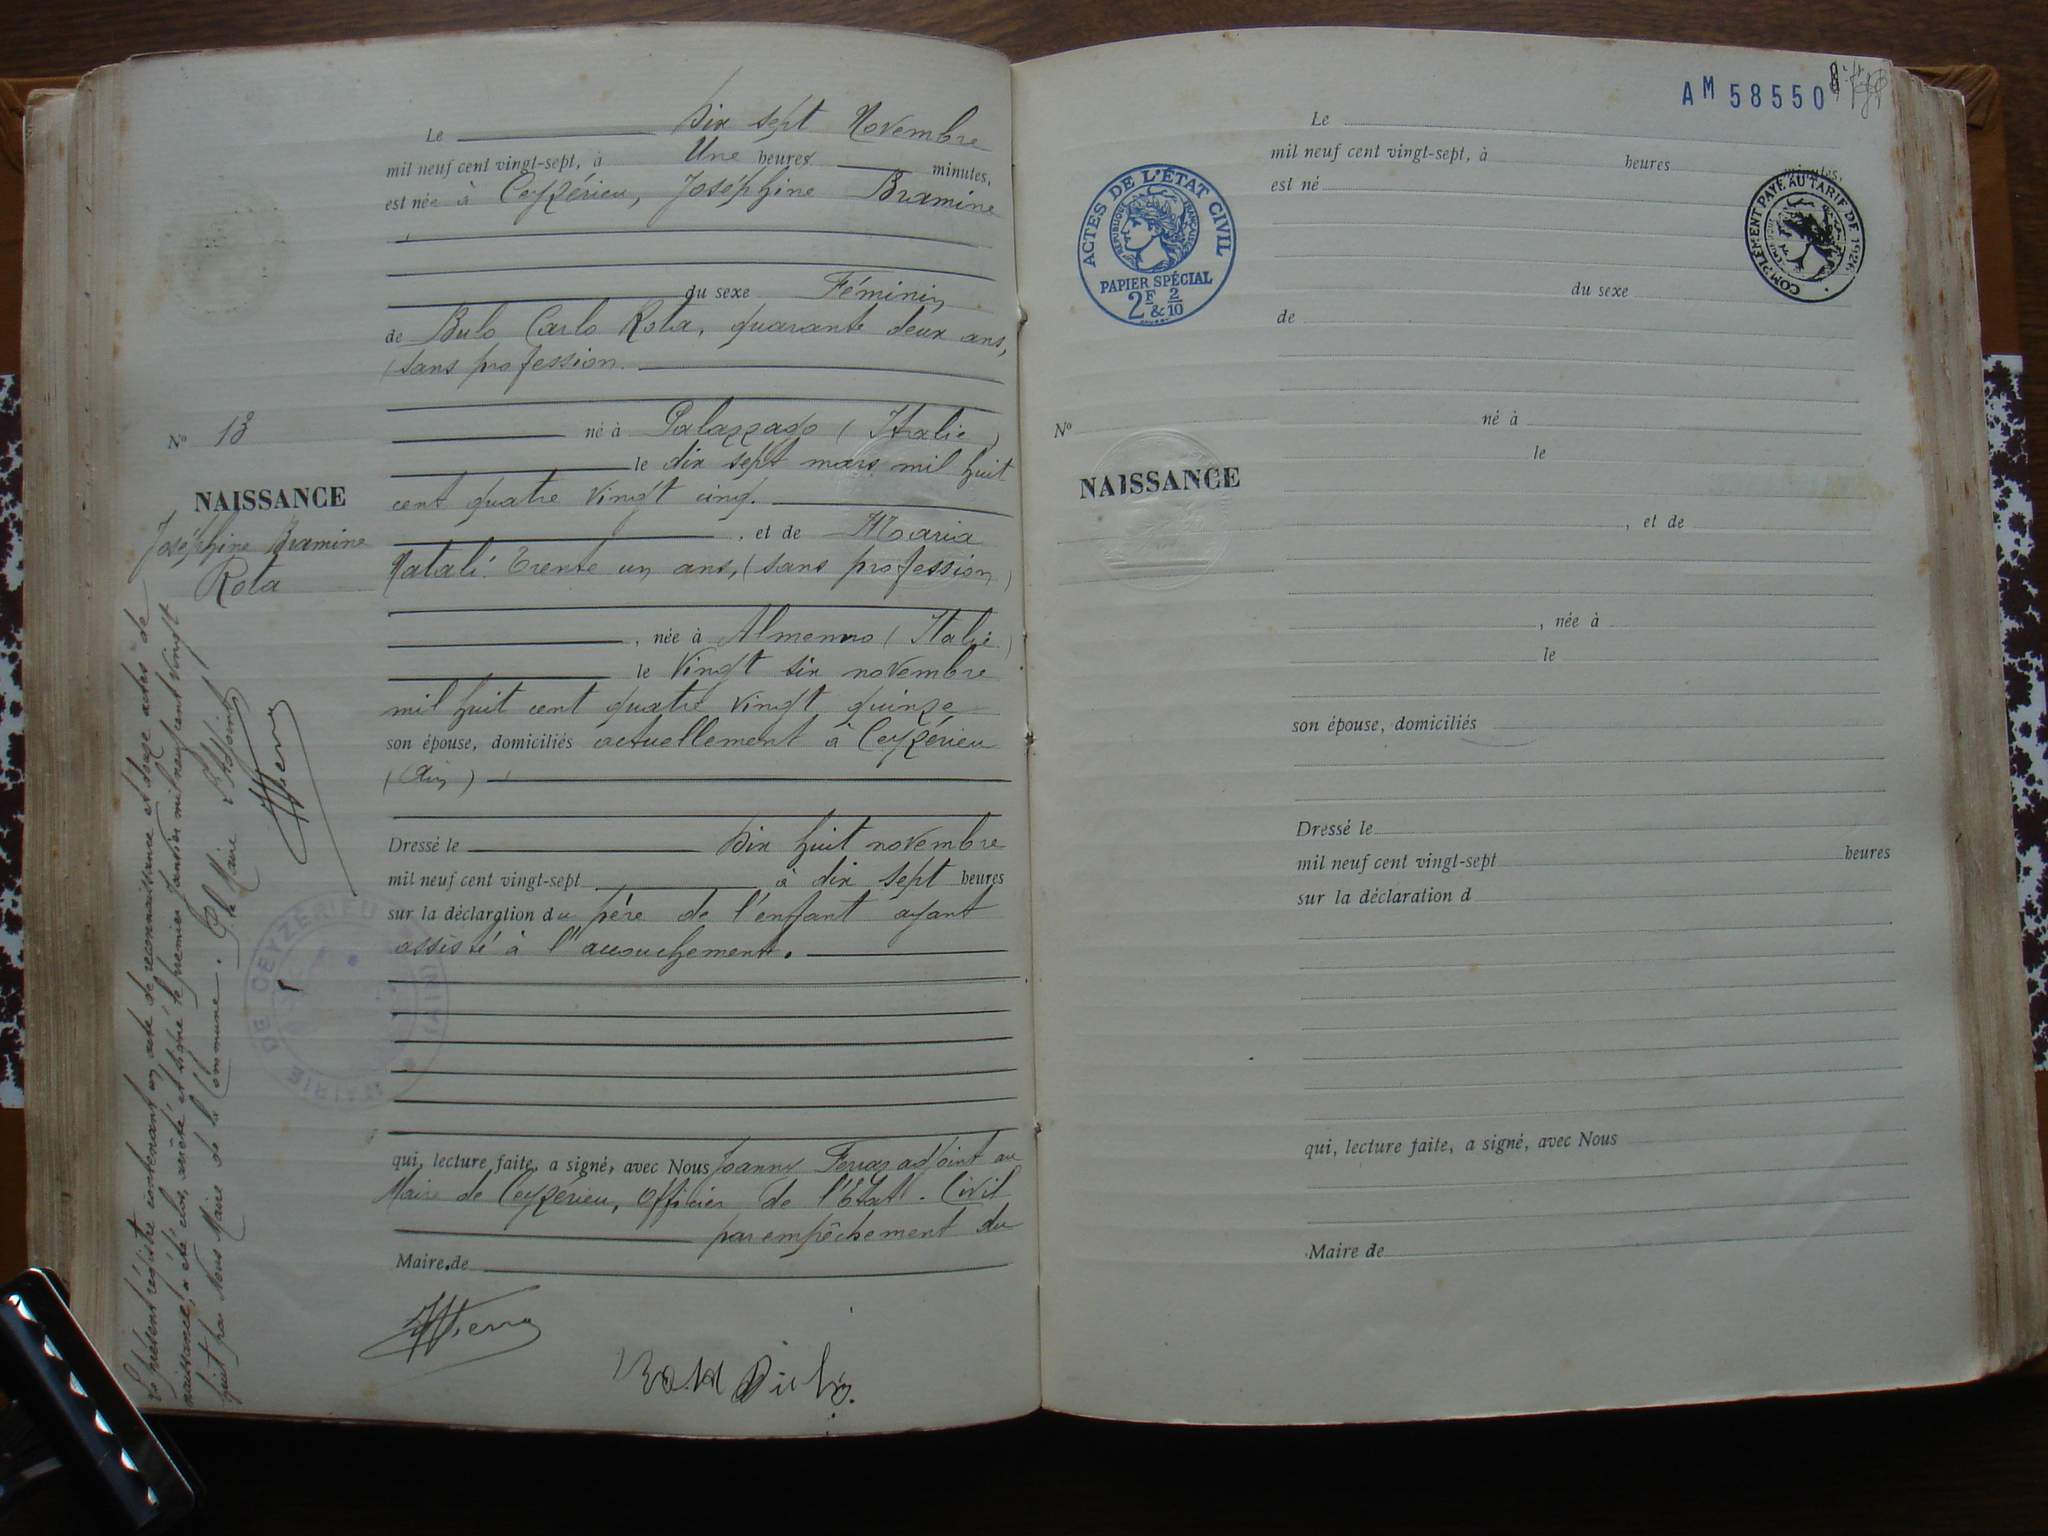 Le Dix sept Novembre
mil neuf cent vingt-sept, à Une heures minutes,
est née à Ceyzérieu, Joséphine Bramine
du sexe Féminin
de Bulo Carlo Rota, quarante deux ans,
(sans profession.
né à Palazzago (Italie)
le dix sept mars mil huit
cent quatre vingt cinq.
, et de Maria
Natali. Trente un ans, (sans profession)
, née à Almenno (Italie)
le Vingt six novembre
mil huit cent quatre vingt quinze
son épouse, domiciliés actuellement à Ceyzérieu
(Ain)
Dressé le Dix huit novembre
mil neuf cent vingt-sept à dix sept heures
sur la déclaration du père de l'enfant ayant
assisté à l'accouchement.
qui, lecture faite, a signé, avec Nous Joanny adjoint au
Maire de Ceyzérieu, Officier de l'Etat-Civil
par empêchement du
Maire de
Rota
N° 13
NAISSANCE
Joséphine Bramine
Rota
Le présent registre contenant un acte de reconnaissance et douze actes de
naissance, a été clos, arrêté et signé le premier janvier mil neuf cent vingt
huit par Nous Maire de la Commune. P. le Maire l'Adjoint
MAIRIE DE CEYZÉRIEU (AIN)
AM 58550
ACTES DE L'ÉTAT CIVIL
RÉPUBLIQUE FRANÇAISE
PAPIER SPÉCIAL
2F & 2/10
COMPLÉMENT PAYÉ AU TARIF DE 1926
Le
mil neuf cent vingt-sept, à heures minutes,
est né
du sexe
de
N°
NAISSANCE
né à
le
, et de
, née à
le
son épouse, domiciliés
Dressé le
mil neuf cent vingt-sept heures
sur la déclaration d
qui, lecture faite, a signé, avec Nous
Maire de